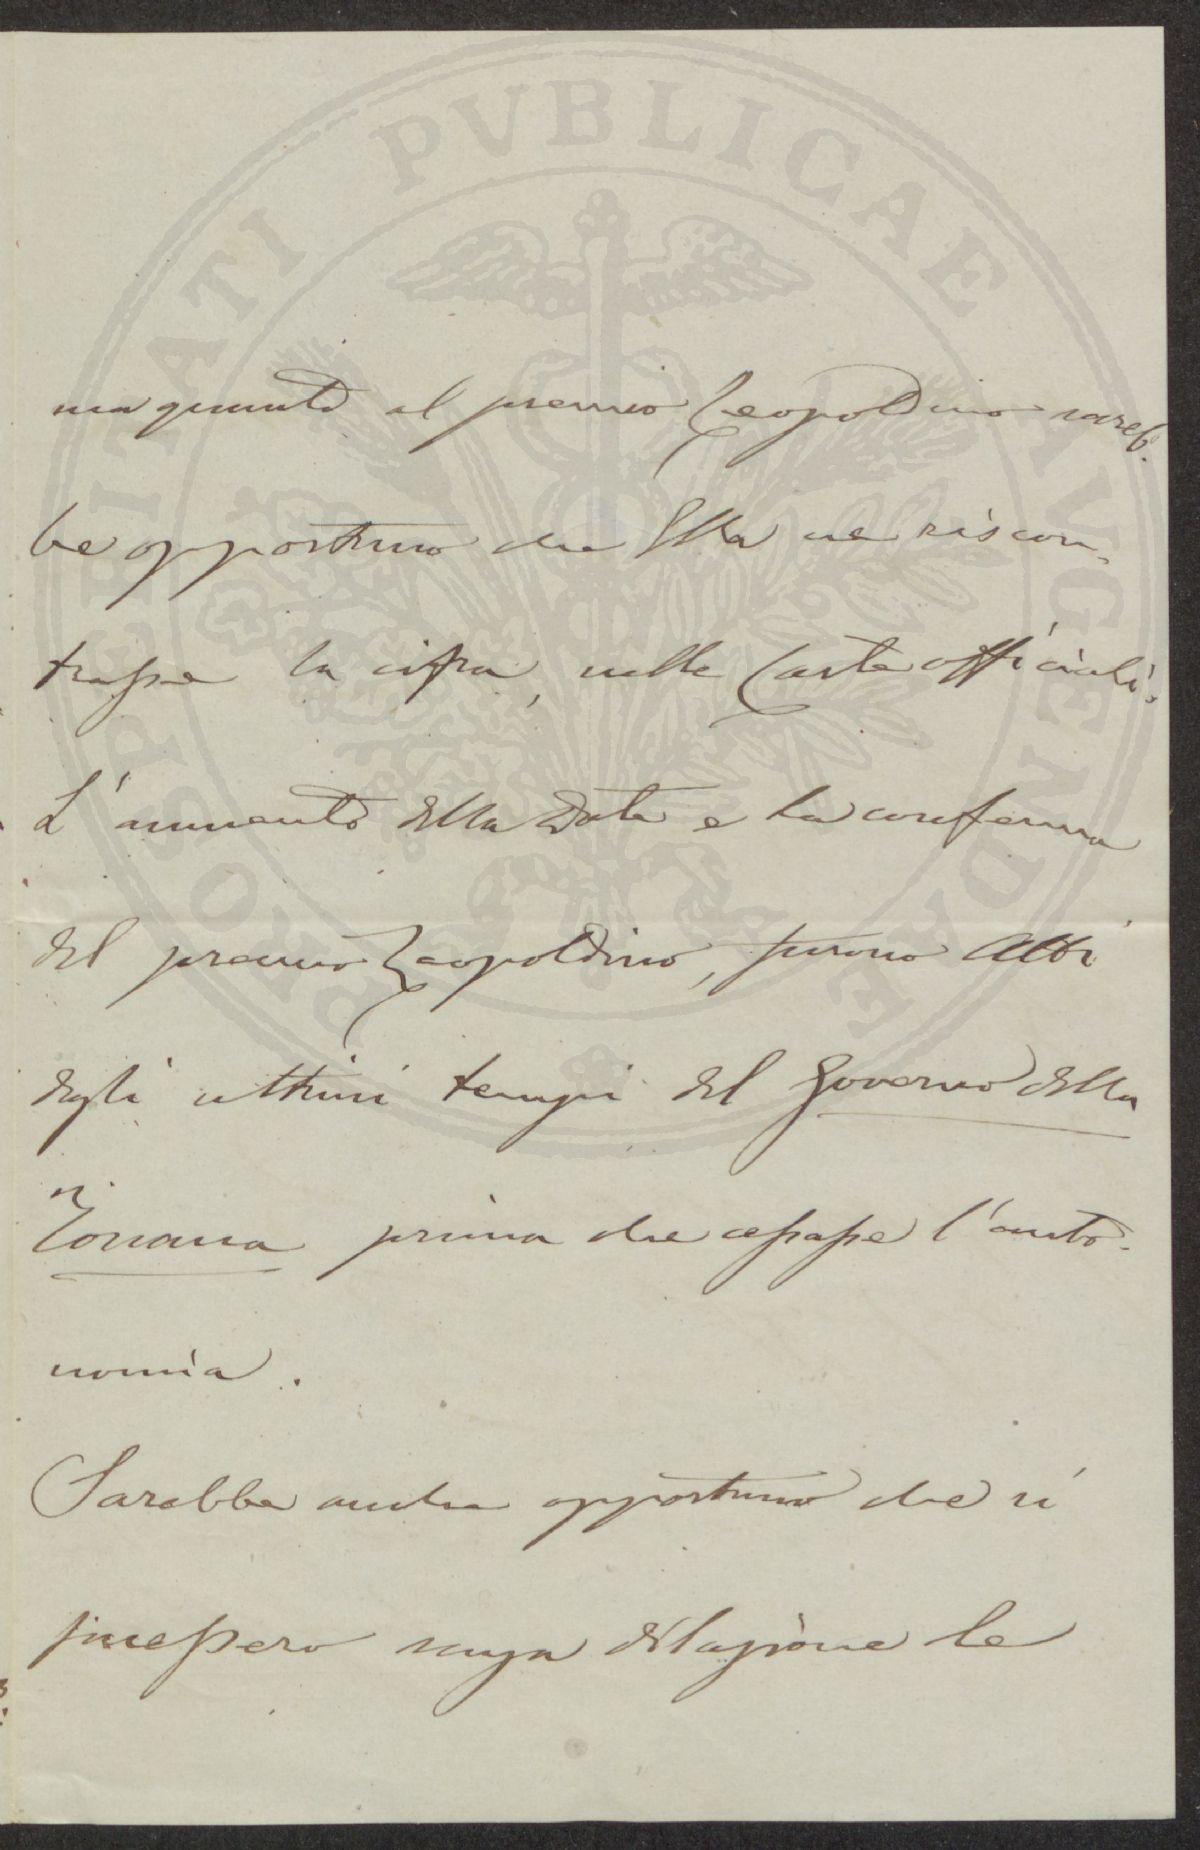 ma quanto al premio Leopoldino sareb.
be opportuno che Ella ne riscon.
trasse la cifra, nelle Carte officiali.
L'aumento della Dote e la conferma
del premio Leopoldino, furono atti
degli ultimi tempi del Governo della
Toscana prima che cessasse l'auto.
nomia.
Sarebbe anche opportuno che si
facessero senza dilazione le
PROSPERITATI PVBLICAE AVGENDAE